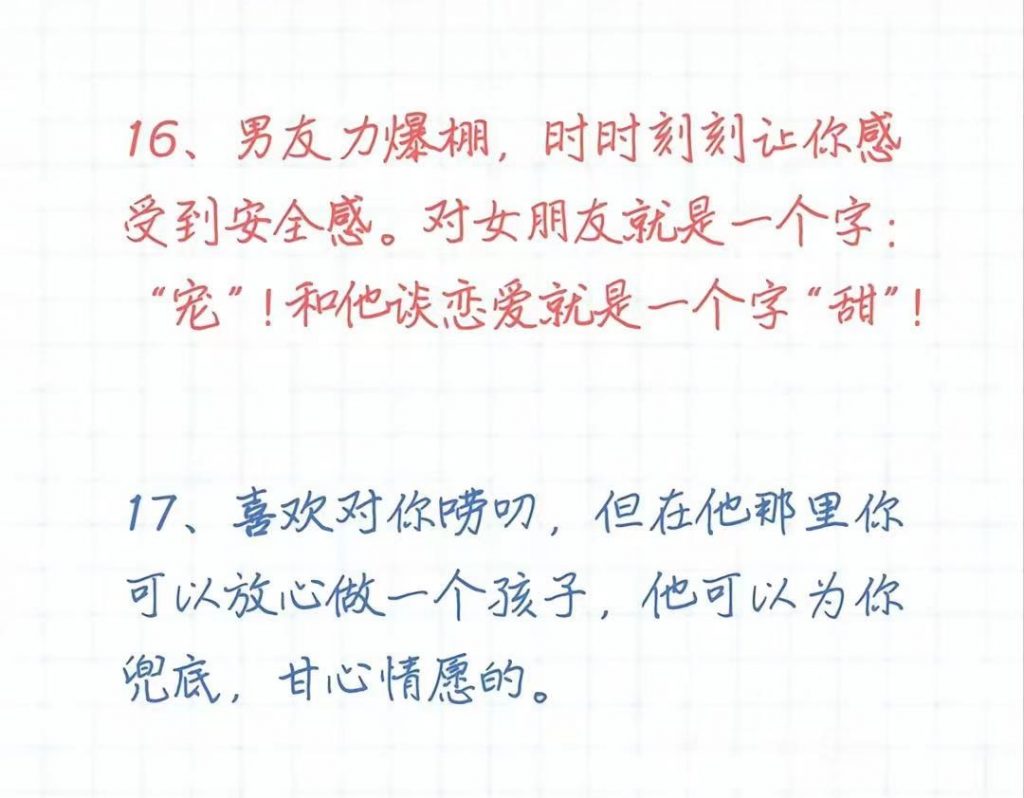 16、男友力爆棚，时时刻刻让你感
受到安全感。对女朋友就是一个字：
“宠”！和他谈恋爱就是一个字“甜”！
17、喜欢对你唠叨，但在他那里你
可以放心做一个孩子，他可以为你
兜底，甘心情愿的。